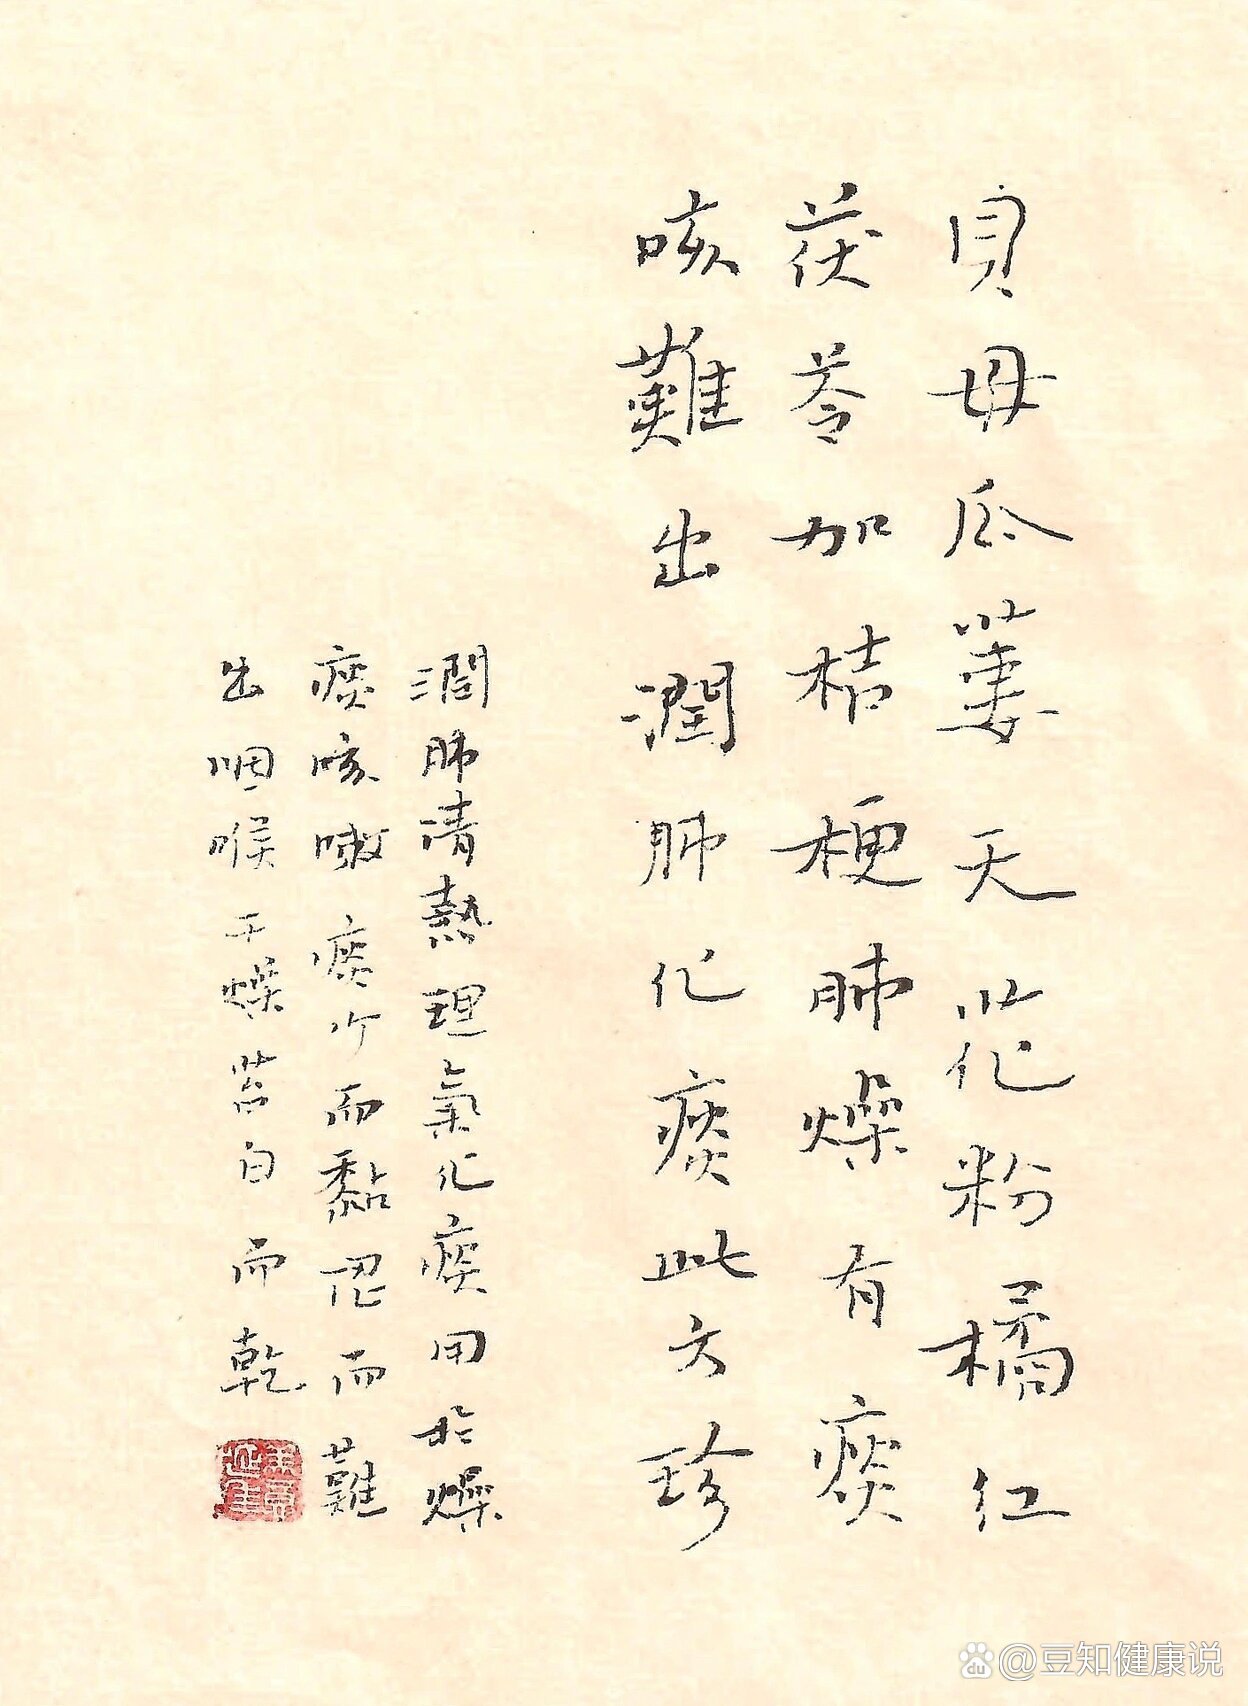 貝母瓜蔞天花粉橘红
茯苓加桔梗肺燥有痰
咳難出潤肺化痰此方珍
潤肺清熱理氣化痰用於燥
痰咳嗽痰少而黏涩而難
出咽喉干燥苔白而乾
@豆知健康说